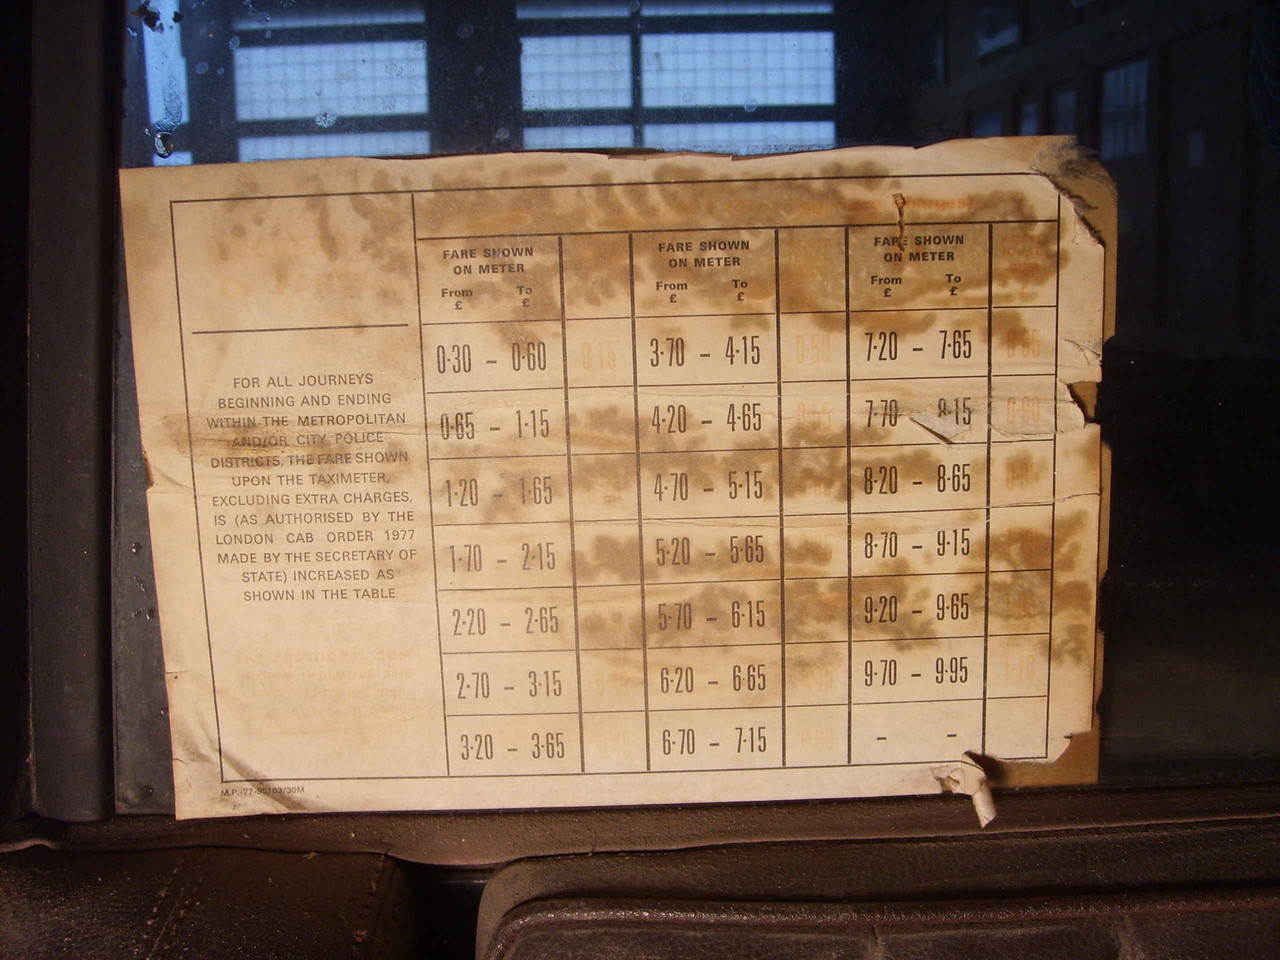 charges)
FARE SHOWN
ON METER
From To
£ £
FARE SHOWN
ON METER
From To
£ £
FARE SHOWN
ON METER
From To
£ £
FOR ALL JOURNEYS
BEGINNING AND ENDING
WITHIN THE METROPOLITAN
AND/OR CITY POLICE
DISTRICTS, THE FARE SHOWN
UPON THE TAXIMETER,
EXCLUDING EXTRA CHARGES,
IS (AS AUTHORISED BY THE
LONDON CAB ORDER 1977
MADE BY THE SECRETARY OF
STATE) INCREASED AS
SHOWN IN THE TABLE
0·30 – 0·60 0·15 3·70 – 4·15 0·50 7·20 – 7·65
0·65 – 1·15 4·20 – 4·65 7·70 8·15
1·20 – 1·65 4·70 – 5·15 8·20 – 8·65
1·70 – 2·15 5·20 – 5·65 8·70 – 9·15
2·20 – 2·65 5·70 – 6·15 9·20 – 9·65
2·70 – 3·15 6·20 – 6·65 9·70 – 9·95
3·20 – 3·65 6·70 – 7·15 – –